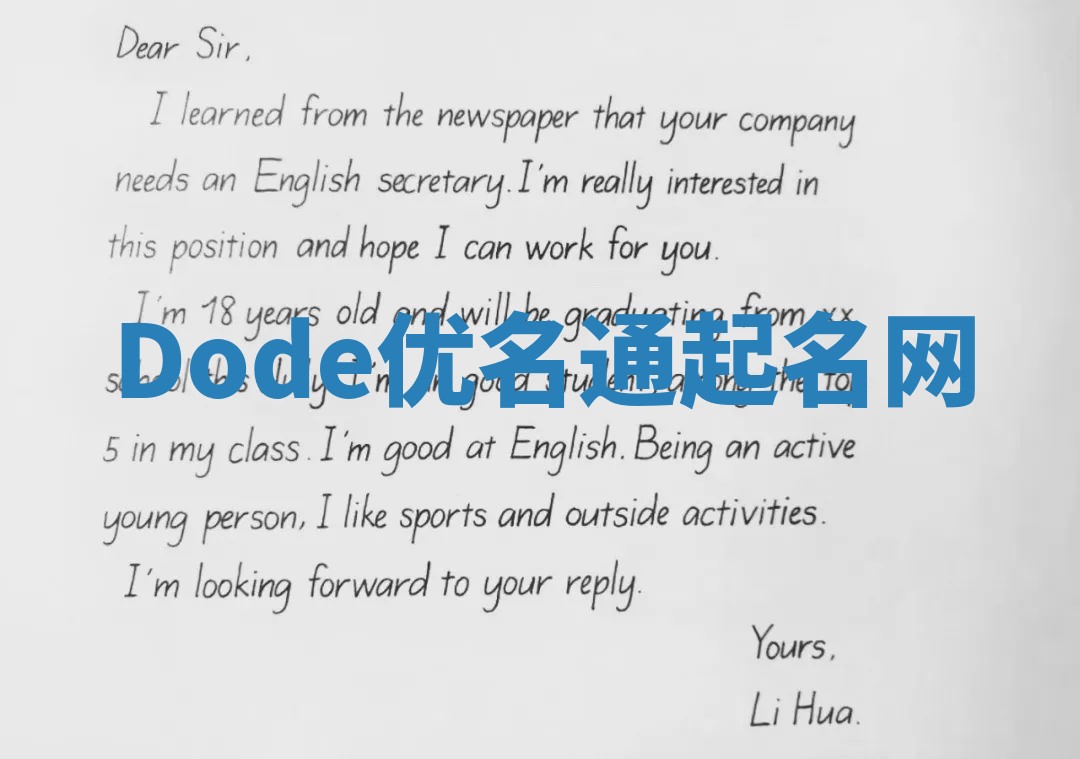 Dear Sir,
I learned from the newspaper that your company
needs an English secretary. I'm really interested in
this position and hope I can work for you.
I'm 18 years old and will be graduating from xx
Dode优名通起名网
school this July. I'm good student, among the top
5 in my class. I'm good at English. Being an active
young person, I like sports and outside activities.
I'm looking forward to your reply.
Yours,
Li Hua.